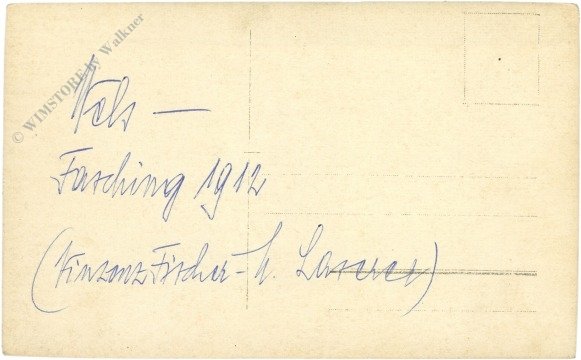 © WIMSTORE by Walkner
Wels —
Fasching 1912
(Vinzenz Fischer - u.